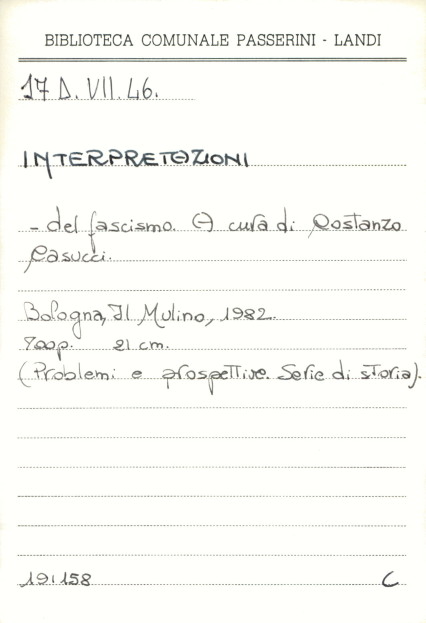 BIBLIOTECA COMUNALE PASSERINI - LANDI
17 D. VII. 46.
INTERPRETAZIONI
- del fascismo. A cura di Costanzo
Casucci.
Bologna, Il Mulino, 1982.
700p. 21 cm.
(Problemi e prospettive. Serie di storia).
191158 C